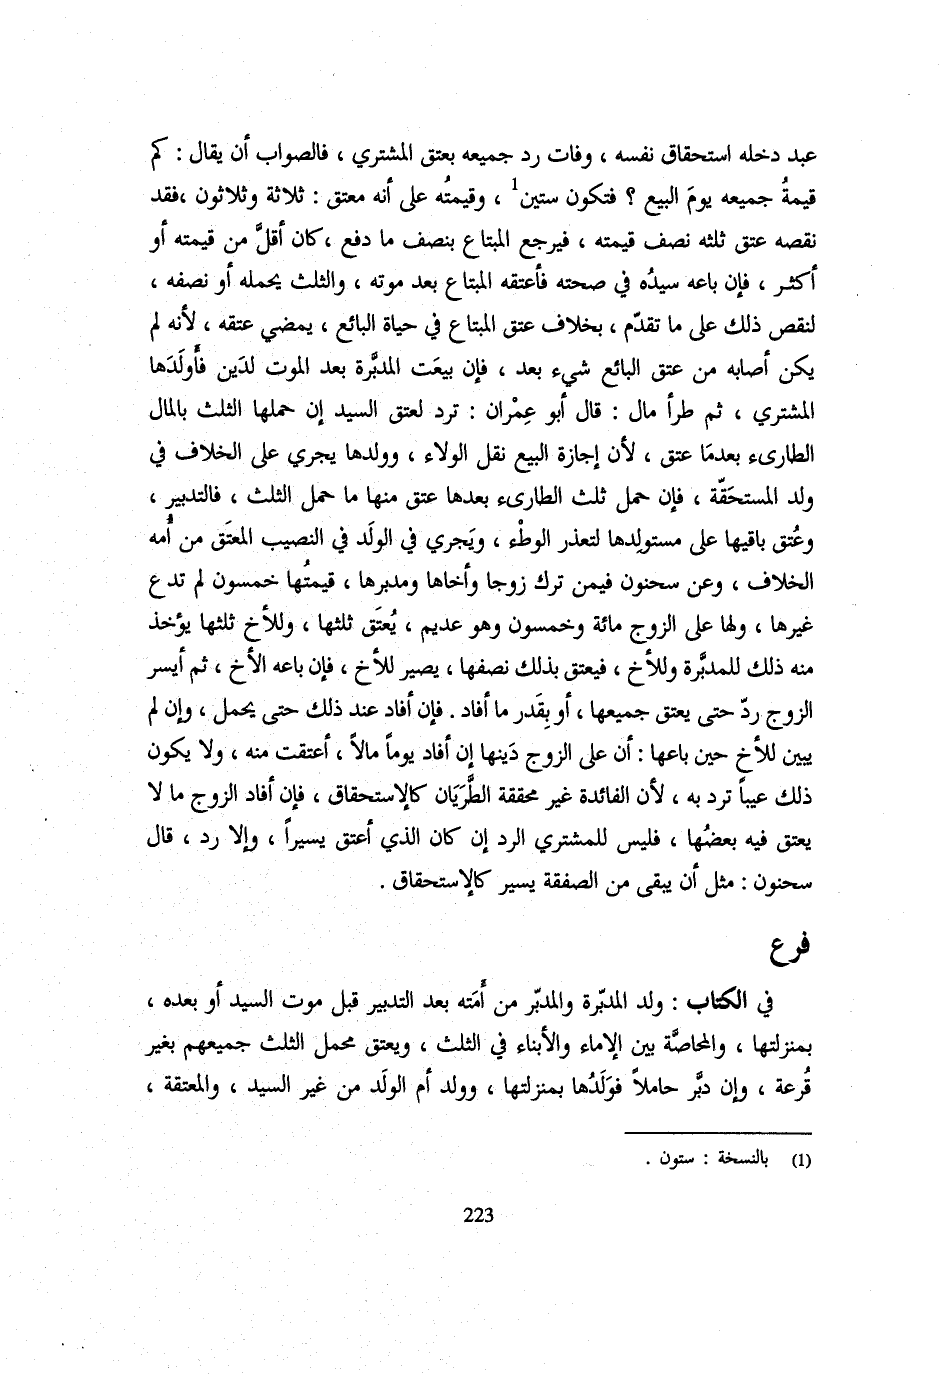 عبد دخله استحقاق نفسه ، وفات رد جميعه بعتق المشتري ، فالصواب أن يقال : كم
قيمةُ جميعه يومَ البيع ؟ فتكون ستين1 ، وقيمتُه على أنه معتق : ثلاثة وثلاثون ،فقد
نقصه عتق ثلثه نصف قيمته ، فيرجع المبتاع بنصف ما دفع ،كان أقلَّ من قيمته أو
أكثر ، فإن باعه سيدُه في صحته فأعتقه المبتاع بعد موته ، والثلث يحمله أو نصفه ،
لنقص ذلك على ما تقدّم ، بخلاف عتق المبتاع في حياة البائع ، يمضي عتقه ، لأنه لم
يكن أصابه من عتق البائع شيء بعد ، فإن بيعَت المدبَّرة بعد الموت لدَين فأَولَدَها
المشتري ، ثم طرأ مال : قال أبو عِمْران : ترد لعتق السيد إن حملها الثلث بالمال
الطارىء بعدمَا عتق ، لأن إجازة البيع نقل الولاء ، وولدها يجري على الخلاف في
ولد المستحَقّة ، فإن حمل ثلث الطارىء بعدها عتق منها ما حمل الثلث ، فالتدبير ،
وعُتق باقيها على مستولِدها لتعذر الوطْء ، ويَجري في الولَد في النصيب المعتَق من أُمه
الخلاف ، وعن سحنون فيمن ترك زوجا وأخاها ومدبرها ، قيمتُها خمسون لم تدع
غيرها ، ولها على الزوج مائة وخمسون وهو عديم ، يُعتَق ثلثها ، وللأخ ثلثها يؤخذ
منه ذلك للمدبَّرة وللأخ ، فيعتق بذلك نصفها ، يصير للأخ ، فإن باعه الأخ ، ثم أيسر
الزوج ردّ حتى يعتق جميعها ، أو بِقَدر ما أفاد . فإن أفاد عند ذلك حتى يحمل ، وإن لم
يبين للأخ حين باعها : أن على الزوج دَينها إن أفاد يوماً مالاً ، أعتقت منه ، ولا يكون
ذلك عيباً ترد به ، لأن الفائدة غير محققة الطَّرَيَان كالإستحقاق ، فإن أفاد الزوج ما لا
يعتق فيه بعضُها ، فليس للمشتري الرد إن كان الذي أعتق يسيراً ، وإلا رد ، قال
سحنون : مثل أن يبقى من الصفقة يسير كالإستحقاق .
فرع
في الكتاب : ولد المدبّرة والمدبّر من أَمَته بعد التدبير قبل موت السيد أو بعده ،
بمنزلتها ، والمحاصَّة بين الإماء والأبناء في الثلث ، ويعتق محمل الثلث جميعهم بغير
قُرعة ، وإن دبَّر حاملاً فوَلَدُها بمنزلتها ، وولد أم الولَد من غير السيد ، والمعتقة ،
(1) بالنسخة : ستون .
223